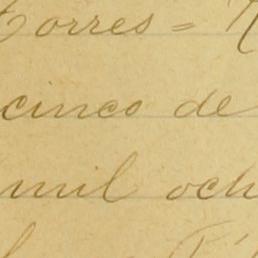 Torres =
cinco de
mil och